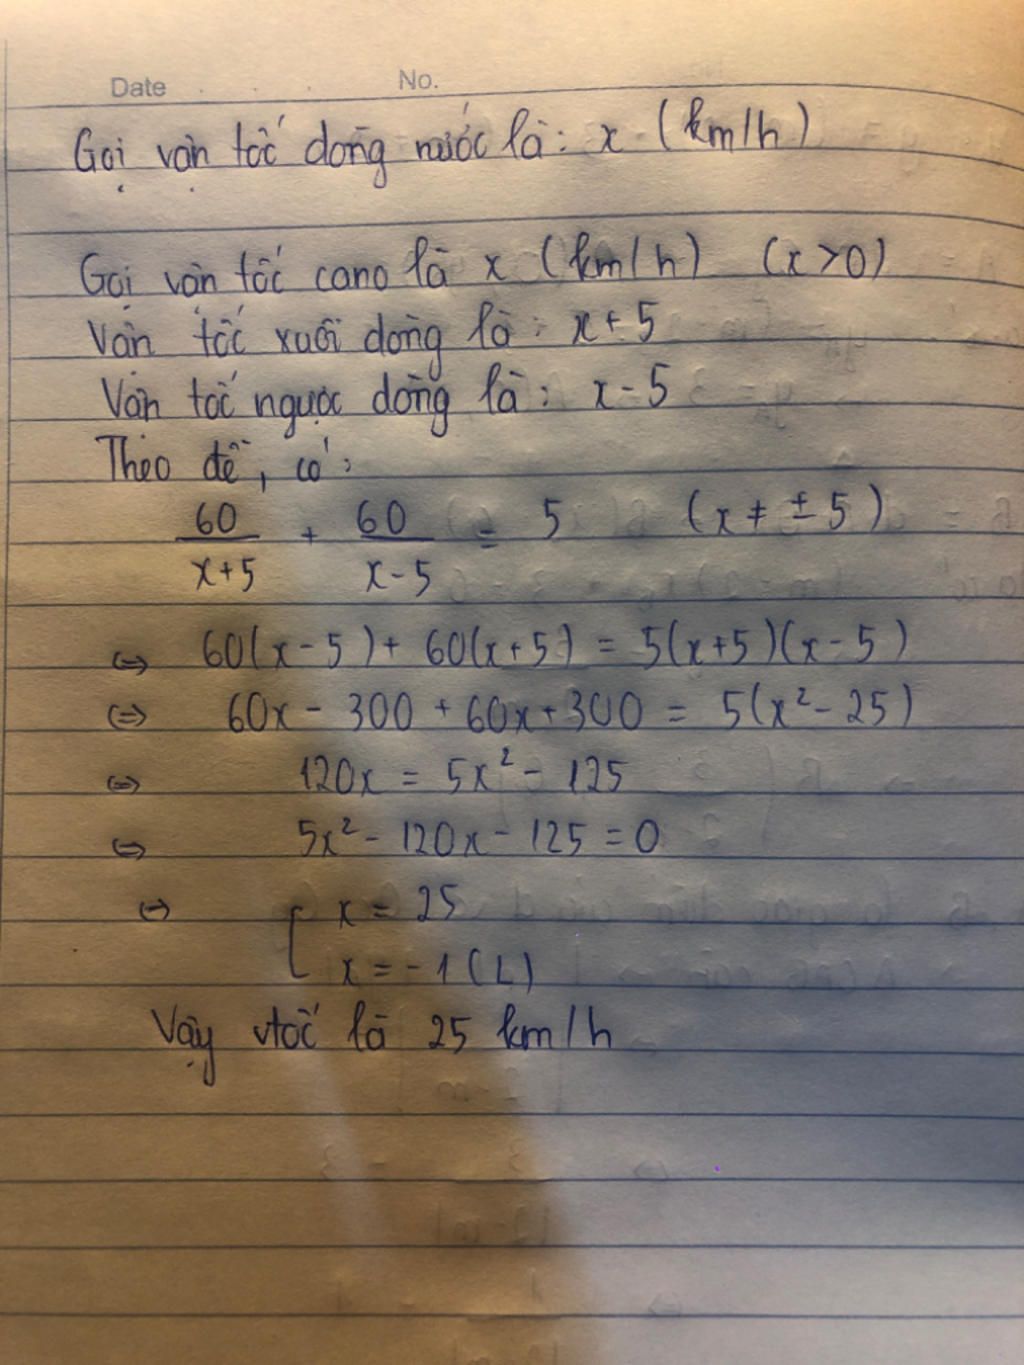 Date No.
Gọi vận tốc dòng nước là: x (km/h)
Gọi vận tốc cano là x (km/h) (x>0)
Vận tốc xuôi dòng là: x+5
Vận tốc ngược dòng là: x-5
Theo đề, có:
60/(x+5) + 60/(x-5) = 5 (x ≠ ±5)
⇔ 60(x-5) + 60(x+5) = 5(x+5)(x-5)
⇔ 60x - 300 + 60x + 300 = 5(x² - 25)
⇔ 120x = 5x² - 125
⇔ 5x² - 120x - 125 = 0
⇔ [ x = 25
x = -1 (L)
Vậy vtốc là 25 km/h